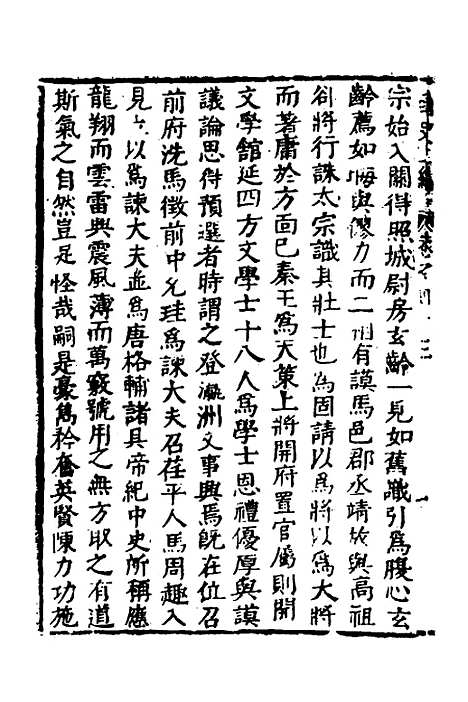 宗始入關得照城尉房玄齡一見如舊識引爲腹心玄
齡薦如晦與僇力而二人有謨馬邑郡丞靖故與高祖
郤將行誅太宗識其壯士也爲固請以爲將以爲大將
而著庸於方面已秦王爲天策上將開府置官屬則開
文學館延四方文學士十八人爲學士恩禮優厚與謨
議論思得預選者時謂之登瀛洲文事興焉旣在位召
前府洗馬徵前中允珪爲諫大夫召茌平人馬周趣入
見以爲諫大夫並爲唐格輔諸具帝紀中史所稱應
龍翔而雲雷興震風薄而萬竅號用之無方取之有道
斯氣之自然豈是怪哉嗣是豪雋矜奮英賢陳力功施